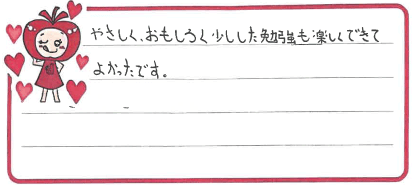 やさしく、おもしろく少しした勉強も楽しくできて
よかったです。